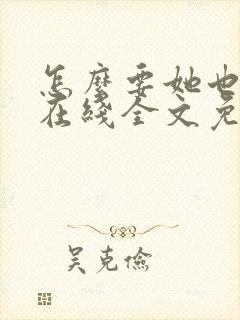 怎麼要她也
在綫全文免
吴克俭